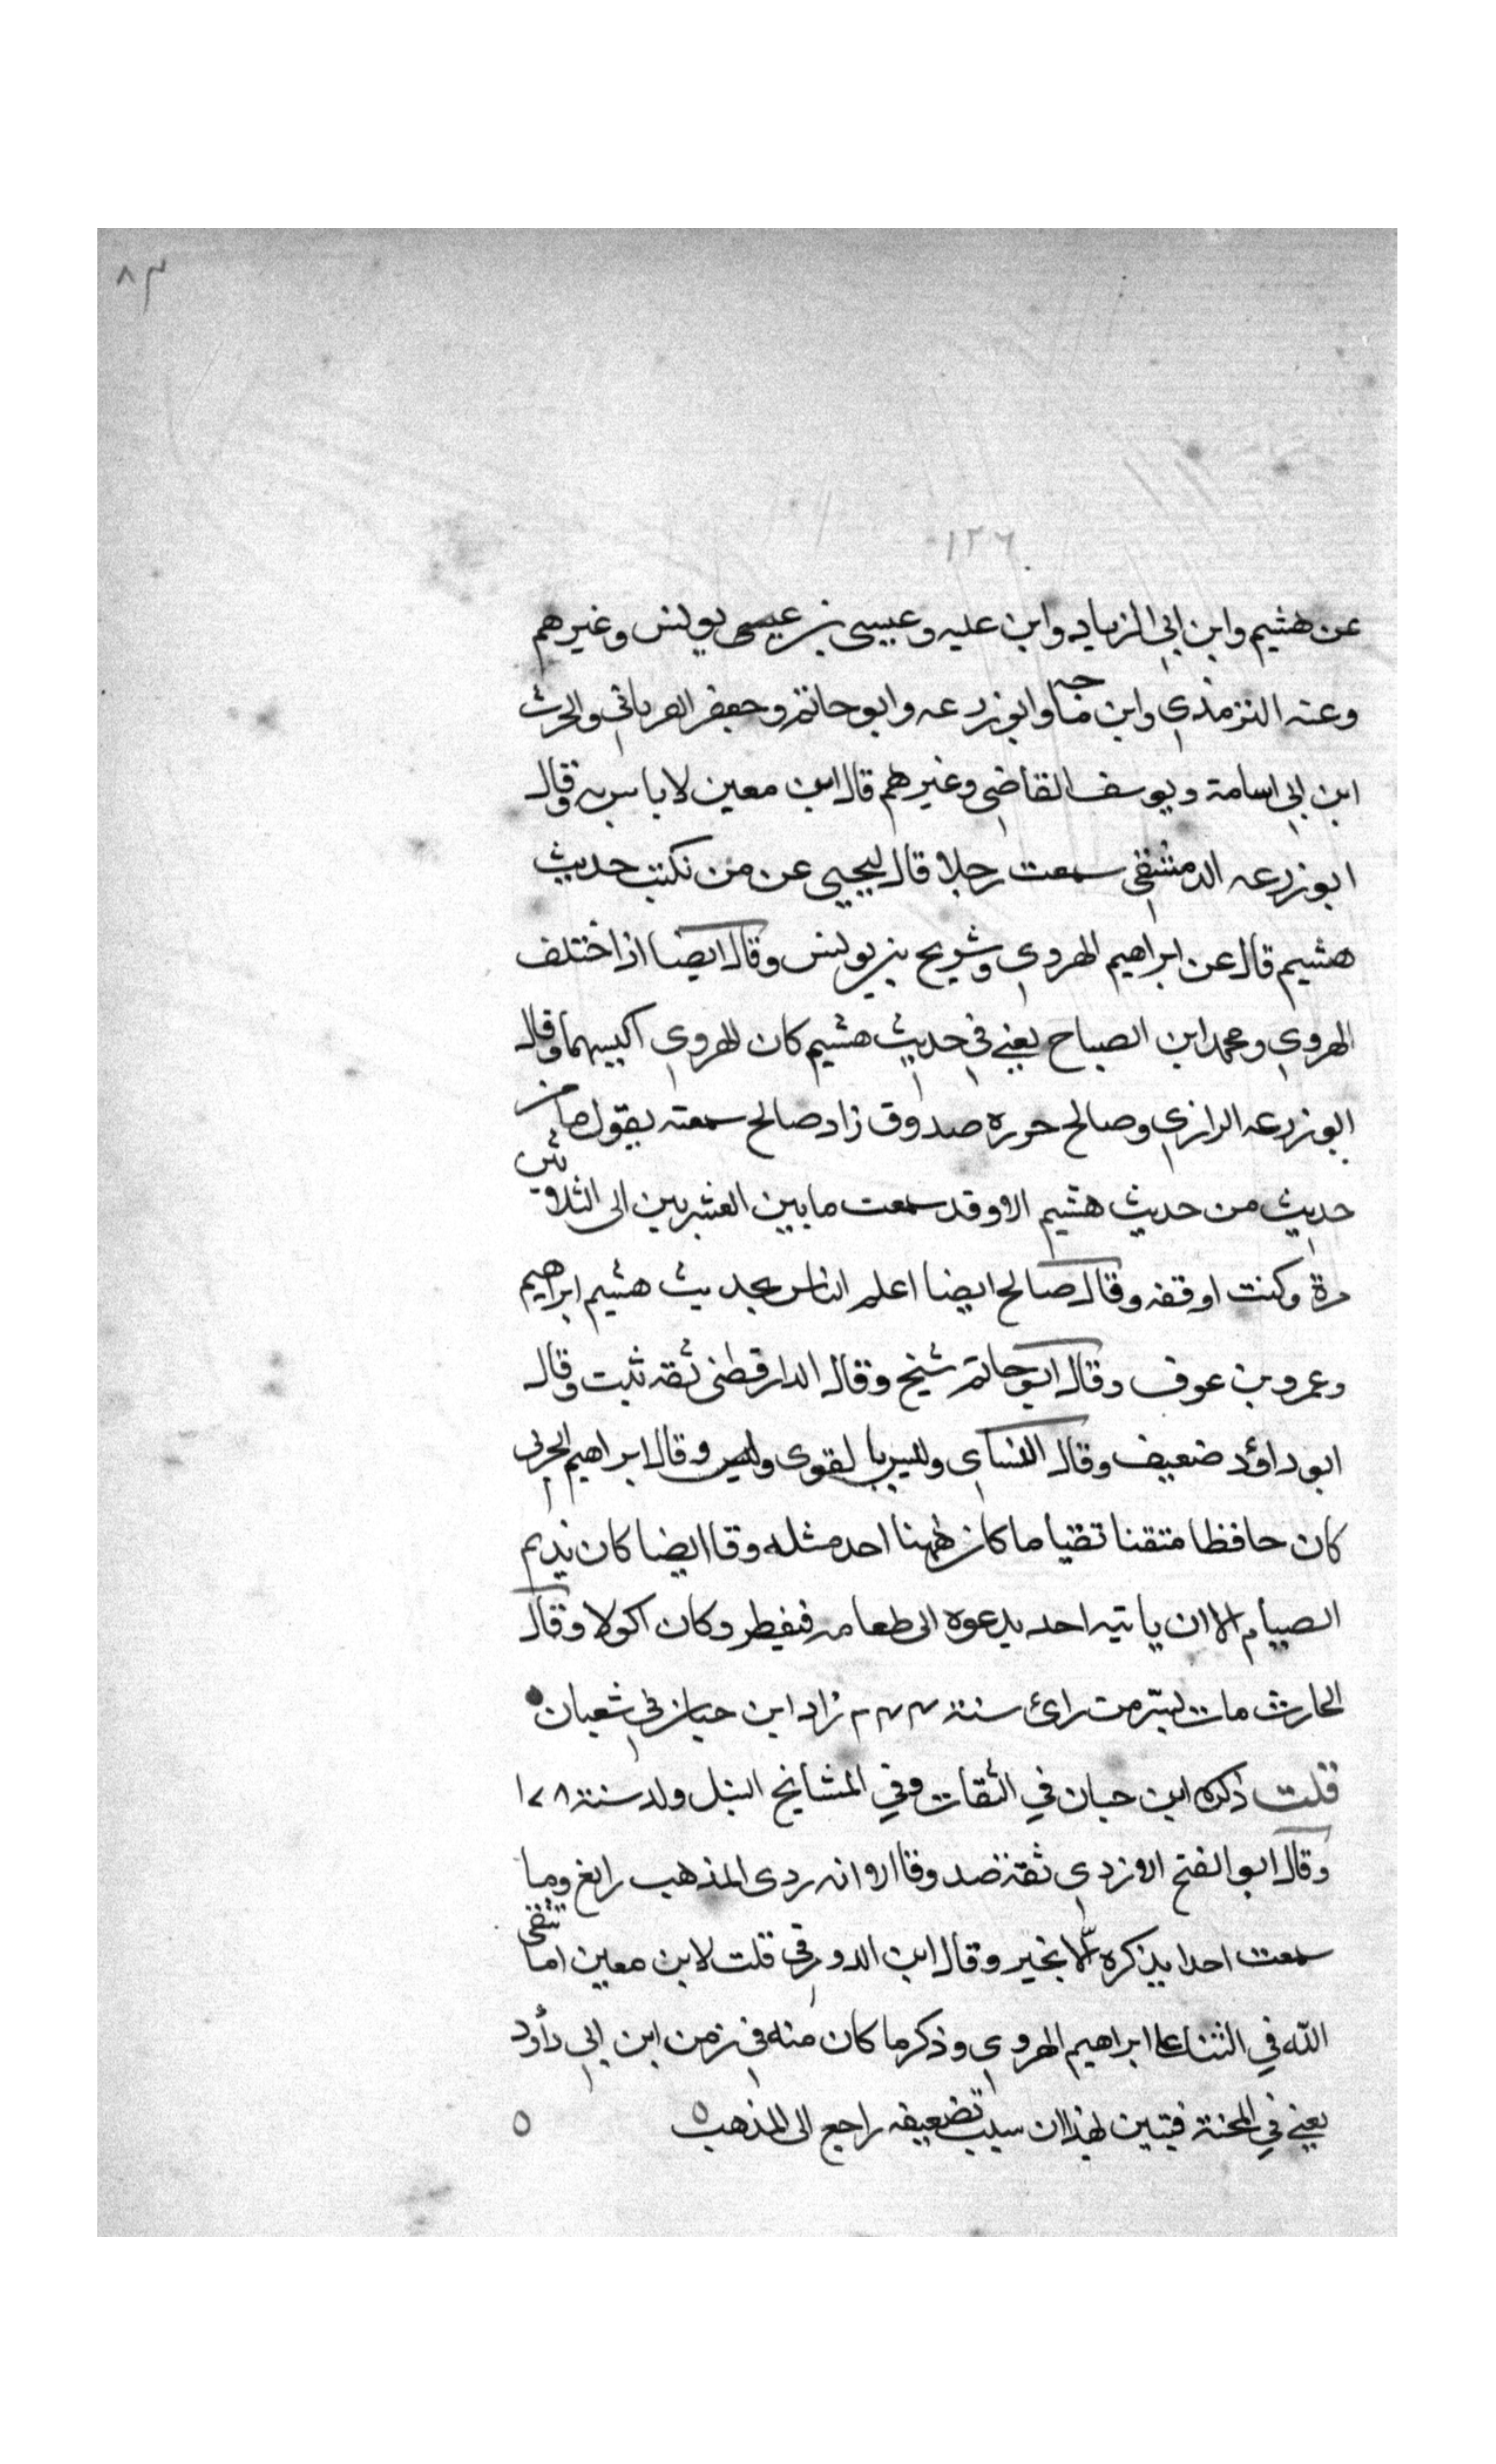 ٨٣
١٢٦
عن هشيم وابن ابي الزياد وابن عليه وعيسى بن عيسى يونس وغيرهم
وعنه الترمذي وابن ماجه وابو زرعه وابو حاتم وجعفر الفرياني والحرث
ابن ابي اسامة ويوسف القاضي وغيرهم قال ابن معين لا باس به وقال
ابو زرعه الدمشقي سمعت رجلا قال ليحيى عن من نكتب حديث
هشيم قال عن ابراهيم الهروي وشريح بن يونس وقال ايضا اذا اختلف
الهروي ومحمد ابن الصباح يعني في حديث هشيم كان الهروي اكيسهما وقال
ابو زرعه الرازي وصالح جزره صدوق زاد صالح سمعته يقول ما من
حديث من حديث هشيم الا وقد سمعت ما بين العشرين الى الثلاثين
مرة وكنت اوقفه وقال صالح ايضا اعلم الناس بحديث هشيم ابراهيم
وعمرو بن عوف وقال ابو حاتم شيخ وقال الدارقطني ثقه ثبت وقال
ابو داؤد ضعيف وقال النساي وليس بالقوى وليس وقال ابراهيم الحربي
كان حافظا متقنا تقيا ما كان ههنا احد مثله وقا ايضا كان يديم
الصيام الا ان ياتيه احد يدعوه الى طعامه فيفطر وكان اكولا وقال
الحارث مات بسر من رائ سنة ٢٤٤ زاد ابن حبان في شعبان
قلت ذكره ابن حبان في الثقات وفي المشايخ النبل ولد سنة ١٧٨
وقال ابو الفتح الازدي ثقة صدوق الا انه ردى المذهب زائغ وما
سمعت احدا يذكره الا بخير وقال ابن الدورقي قلت لابن معين اما تتقى
الله في الثنا على ابراهيم الهروي وذكر ما كان منه في زمن ابن ابي دأود
يعني في المحنة فتبين لهذا ان سبب تضعيفه راجع الى المذهب ٥ ٥